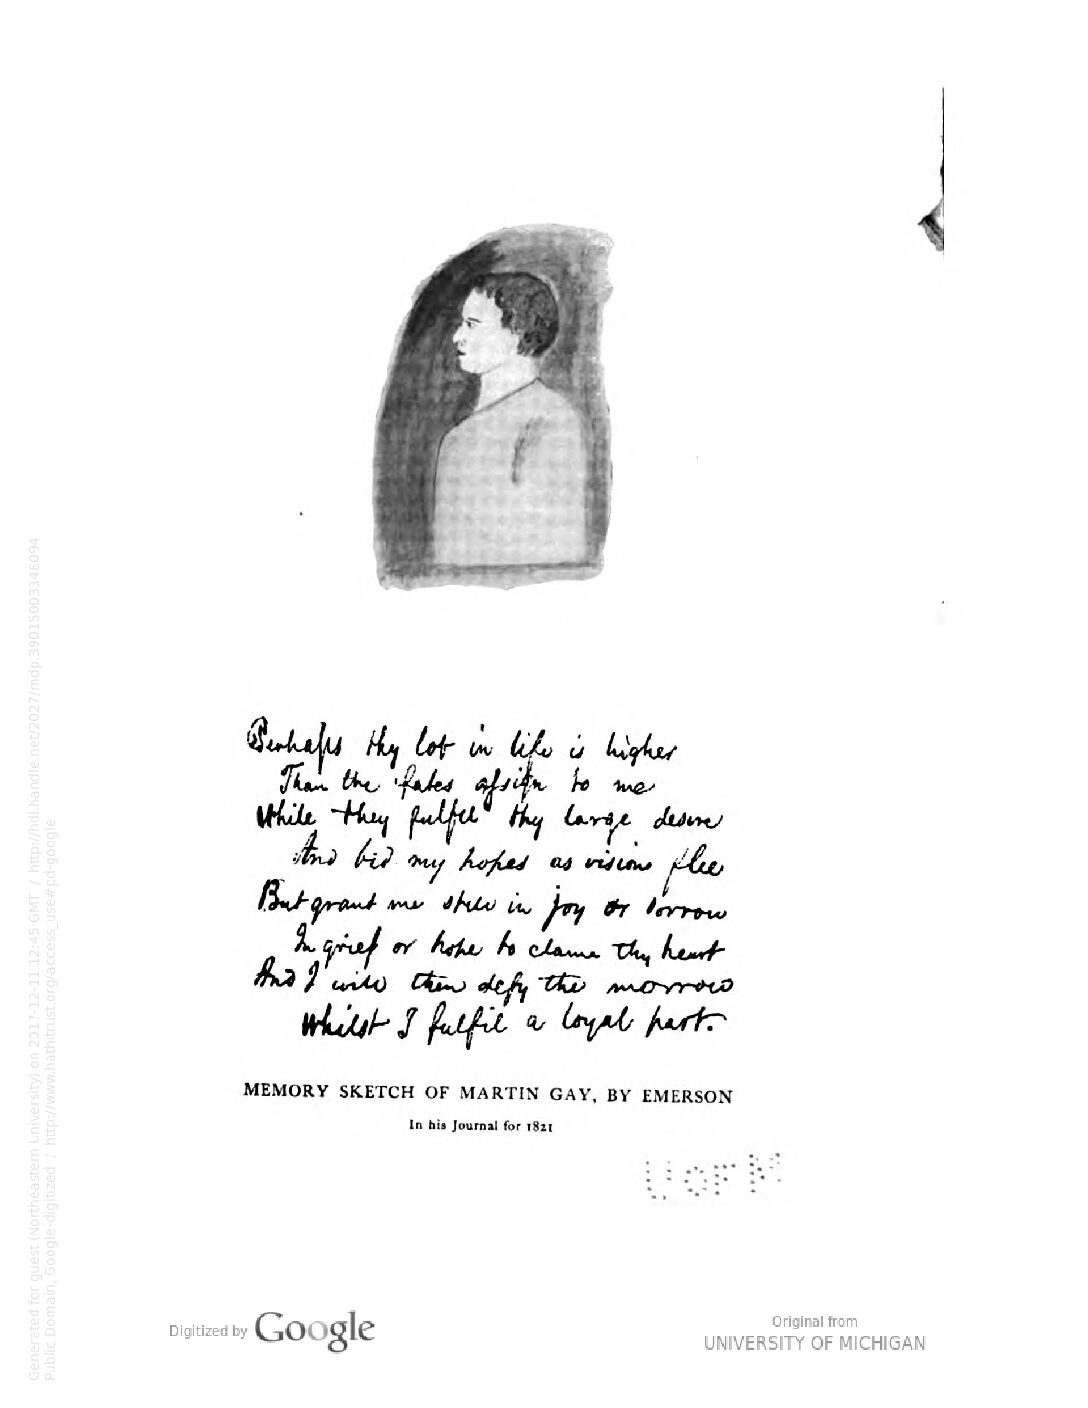 Perhaps thy lot in life is higher
Than the fates assign to me
While they fulfil thy large desire
And bid my hopes as visions flee
But grant me still in joy or sorrow
In grief or hope to claim thy heart
And I will then defy the morrow
Whilst I fulfil a loyal part.
MEMORY SKETCH OF MARTIN GAY, BY EMERSON
In his Journal for 1821
U OF M
Digitized by Google
Original from
UNIVERSITY OF MICHIGAN
Generated for guest (Northeastern University) on 2017-12-11 12:45 GMT / http://hdl.handle.net/2027/mdp.39015003348094
Public Domain, Google-digitized / http://www.hathitrust.org/access_use#pd-google